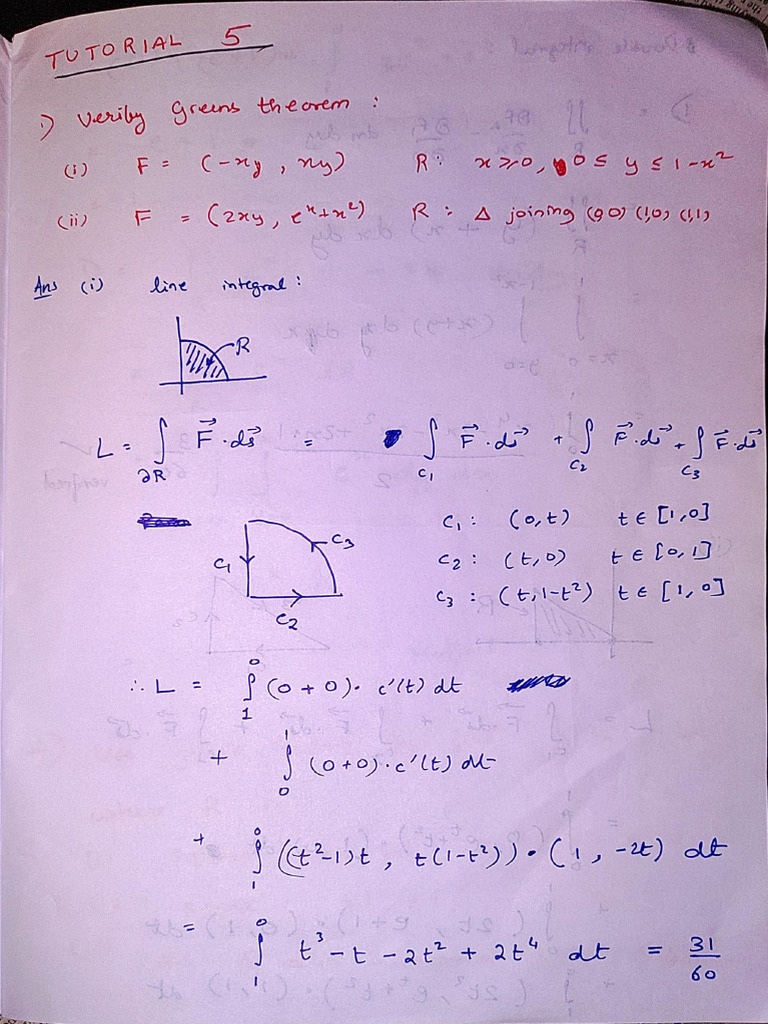 TUTORIAL 5
1) Verify Greens theorem :
(i) F = (-xy , xy) R : x ≥ 0, 0 ≤ y ≤ 1-x²
(ii) F = (2xy, eˣ+x²) R : Δ joining (0,0) (1,0) (1,1)
Ans (i) line integral :
R
L = ∫_∂R F⃗ · ds⃗ = ∫_C₁ F⃗ · ds⃗ + ∫_C₂ F⃗ · ds⃗ + ∫_C₃ F⃗ · ds⃗
C₁ C₂ C₃
C₁ : (0,t) t ∈ [1,0]
C₂ : (t,0) t ∈ [0,1]
C₃ : (t,1-t²) t ∈ [1,0]
∴ L = ∫₁⁰ (0+0) · c'(t) dt
+ ∫₀¹ (0+0) · c'(t) dt
+ ∫₁⁰ ((t²-1)t , t(1-t²)) · (1, -2t) dt
= ∫₁⁰ t³ - t - 2t² + 2t⁴ dt = 31/60